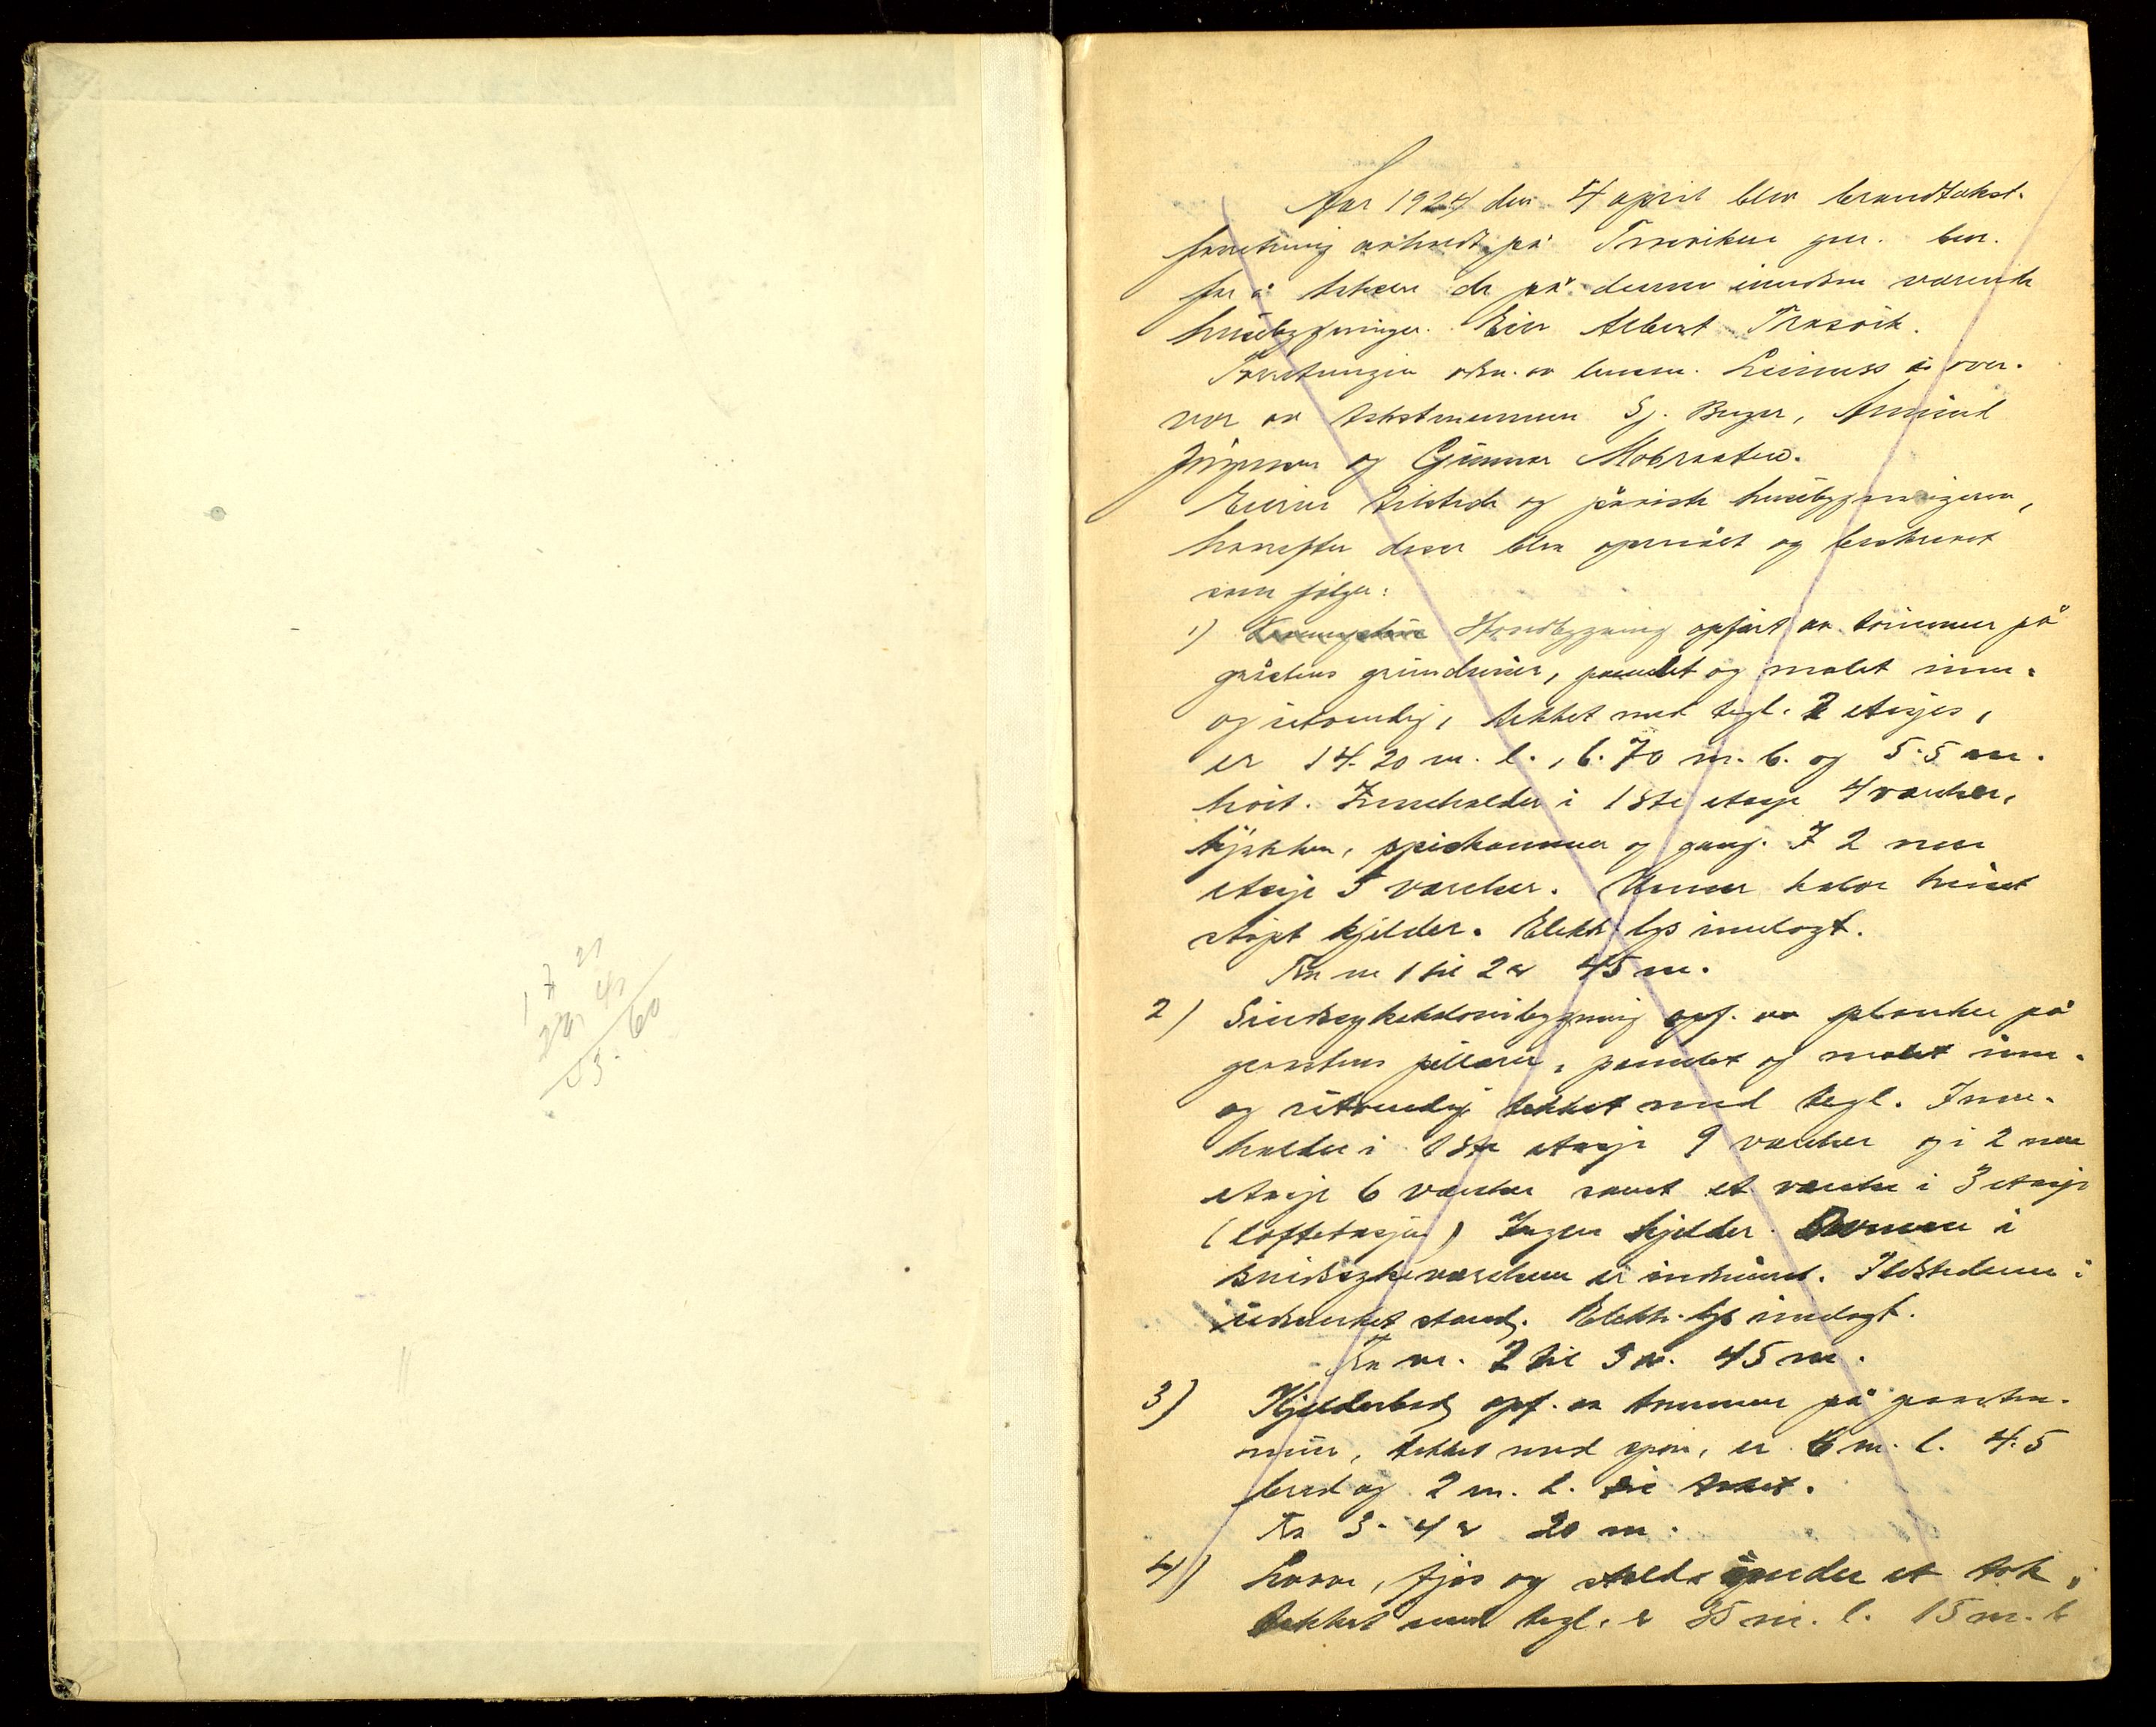 7 21
1
45
53.60
Aar 1924 den 4 april blev brandtakst-
forretning avholdt på Trasviken gnr. bnr.
for å taksere de på denne eiendom værende
husebygninger. Eier Albert Trasvik.
Forretningen adm. av lensm. i over-
vær av takstmennene Sj. Berger, Amund
og Gunnar Mobraaten.
Eieren tilstede og påviste husebygningene,
hvorefter disse blev opmålt og beskrevet
som følger:
1) Hovedbygning opført av tømmer på
gråstens grundmur, panelet og malet inn-
og utvendig, tekket med tegl. 2 etasjes,
er 14.20 m. l., 6.70 m. b. og 5.5 m.
høit. Inneholder i 1ste etasje 4 værelser,
kjøkken, spiskammer og gang. I 2 nen
etasje 5 værelser. Under halve huset
støpt kjelder. Elektr. lys innlagt.
Fra nr 1 til 2 er 45 m.
2) Sindsykekolonibygning opf. av planker på
gråstens pillarer, panelet og malet inn-
og utvendig tekket med tegl. Inne-
holder i 1ste etasje 9 værelser og i 2 nen
etasje 6 værelser samt et værelse i 3 etasje
(loftetasjen) Ingen kjelder. Ovnene i
sindssykeværelsene er indmuret. Ildstedene i
udmerket stand. Elektr. lys innlagt.
Fra nr. 2 til 3 er 45 m.
3) Kjelderbod opf. av tømmer på graasten-
mur, tekket med spon, er 6 m. l. 4.5
bred og 2 m. h. til taket.
Fra 3 - 4 er 20 m.
4) Laave, fjøs og stald under et tak,
tekket med tegl, er 35 m. l. 15 m. b